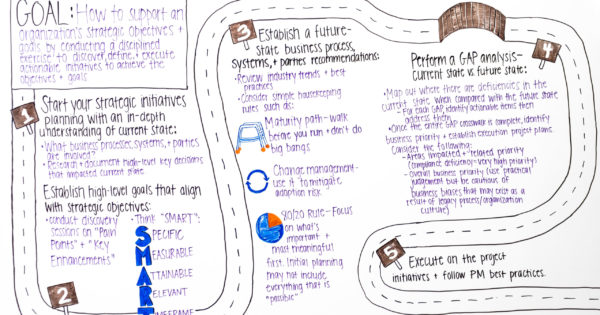 GOAL: How to support an
organization's strategic objectives +
goals by conducting a disciplined
exercise to discover, define, + execute
actionable initiatives to achieve the
objectives + goals
1
Start your strategic initiatives
planning with an in-depth
understanding of current state:
• What business processes, systems, + parties
are involved?
• Research + document high-level key decisions
that impacted current state.
Establish high-level goals that align
with strategic objectives:
• conduct discovery
sessions on "Pain
Points" + "Key
Enhancements"
• Think "SMART":
SPECIFIC
MEASURABLE
ATTAINABLE
RELEVANT
TIMEFRAME
2
3
Establish a future-
state business process,
systems, + parties recommendations:
• Review industry trends + best
practices
• Consider simple housekeeping
rules such as:
Maturity path - walk
before you run + don't do
big bangs
Change management -
use it to mitigate
adoption risk
90/20 Rule - Focus
on what's
important +
most meaningful
first. Initial planning
may not include
everything that is
"possible"
4
Perform a GAP analysis -
current state vs future state:
• Map out where there are deficiencies in the
current state when compared with the future state
- For each GAP, identify actionable items then
address them
• Once the entire GAP crosswalk is complete, identify
business priority + establish execution project plans.
Consider the following:
- Areas impacted + related priority
(compliance deficiency = very high priority)
- overall business priority (use practical
judgement but be cautious of
business biases that may exist as a
result of legacy process/organization
culture)
5
Execute on the project
initiatives + follow PM best practices.